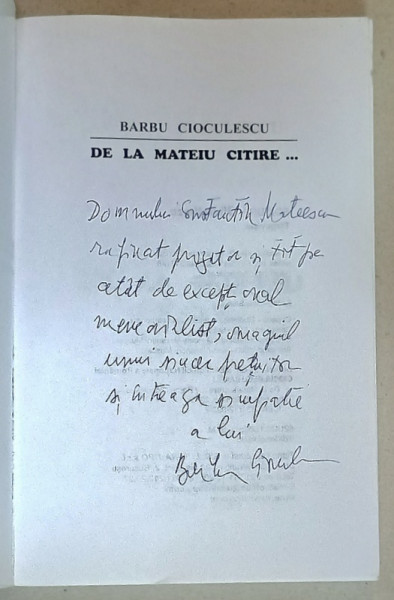 BARBU CIOCULESCU
DE LA MATEIU CITIRE ...
Domnului Constantin Mateescu
rafinat prozator și tot pe
atât de excepțional
memorialist, omagiul
unui sincer prețuitor
și întreaga simpatie
a lui
Barbu Cioculescu